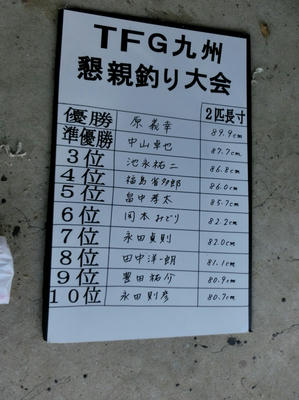 TFG九州
懇親釣り大会
2匹長寸
優勝 原義幸 89.9cm
準優勝 中山卓也 87.7cm
3位 池永祐二 86.8cm
4位 福島省多郎 86.0cm
5位 畠中孝太 85.7cm
6位 岡本みどり 82.2cm
7位 永田貞則 82.0cm
8位 田中洋一朗 81.1cm
9位 豊田祐介 80.9cm
10位 永田則彦 80.7cm